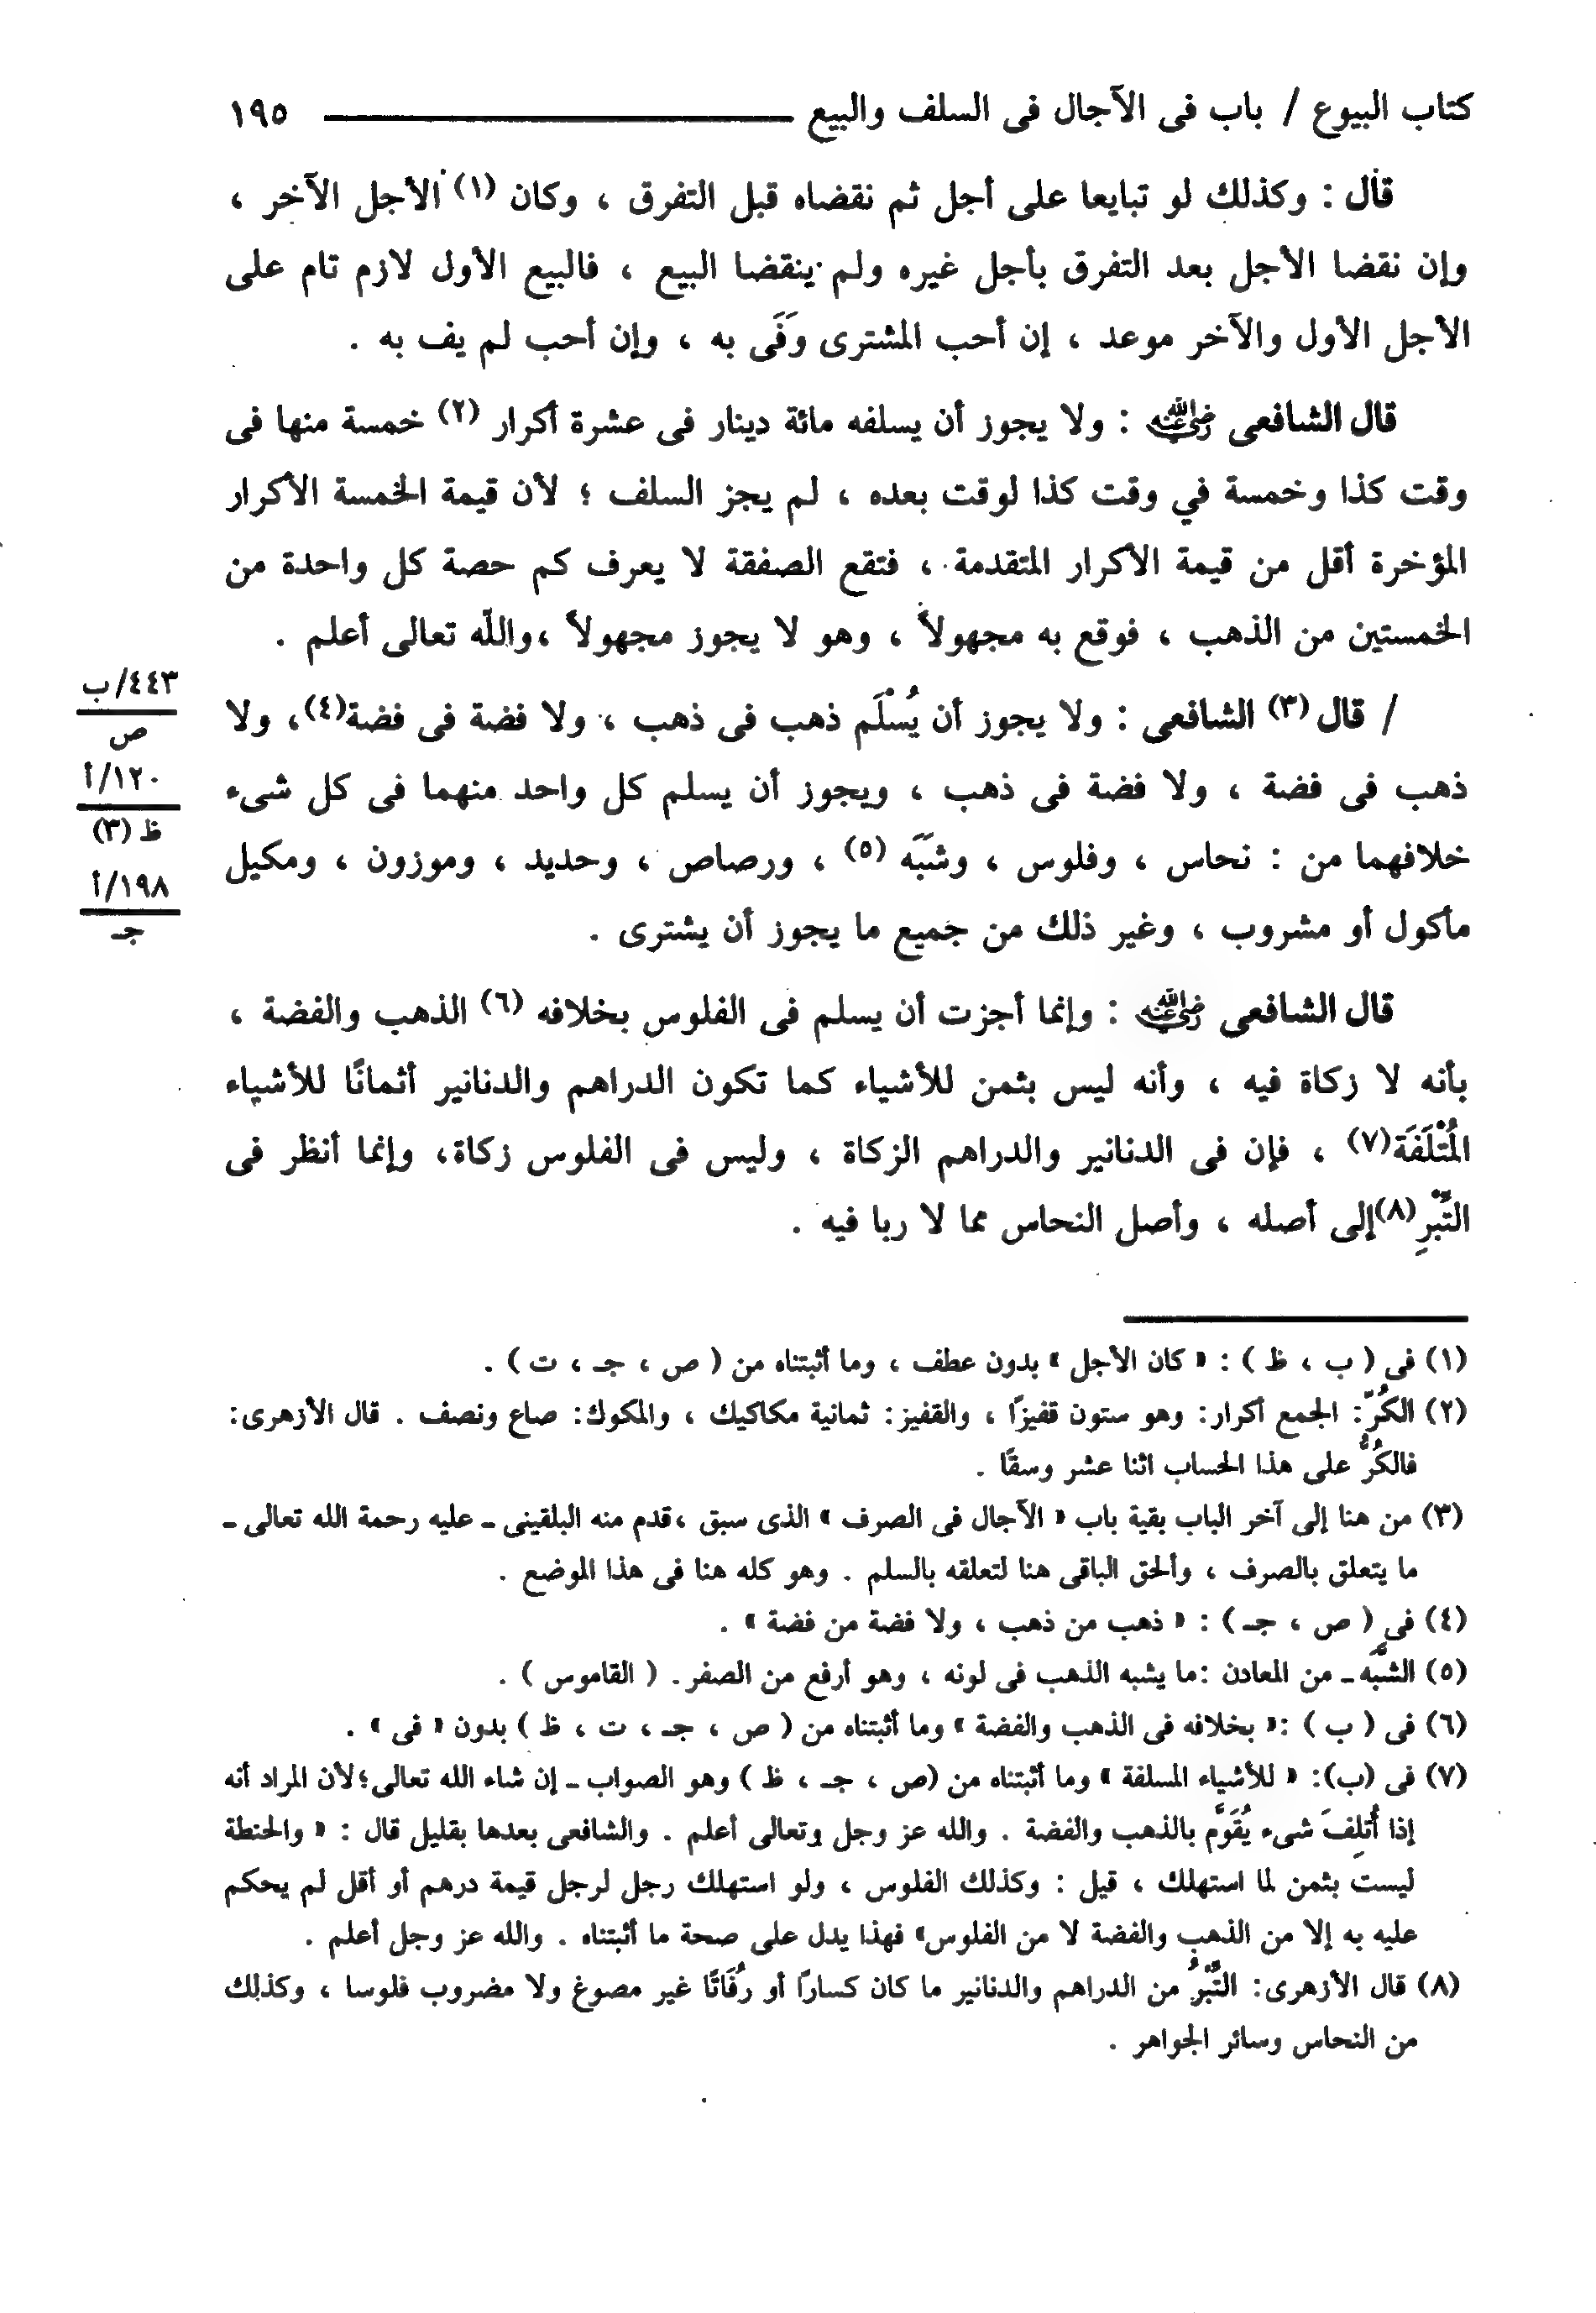 كتاب البيوع / باب فى الآجال فى السلف والبيع ١٩٥
قال : وكذلك لو تبايعا على أجل ثم نقضاه قبل التفرق ، وكان (١) الأجل الآخر ،
وإن نقضا الأجل بعد التفرق بأجل غيره ولم ينقضا البيع ، فالبيع الأول لازم تام على
الأجل الأول والآخر موعد ، إن أحب المشترى وَفَى به ، وإن أحب لم يف به .
قال الشافعى رضي الله عنه : ولا يجوز أن يسلفه مائة دينار فى عشرة أكرار (٢) خمسة منها فى
وقت كذا وخمسة في وقت كذا لوقت بعده ، لم يجز السلف ؛ لأن قيمة الخمسة الأكرار
المؤخرة أقل من قيمة الأكرار المتقدمة ، فتقع الصفقة لا يعرف كم حصة كل واحدة من
الخمستين من الذهب ، فوقع به مجهولاً ، وهو لا يجوز مجهولاً ،والله تعالى أعلم .
/ قال (٣) الشافعى : ولا يجوز أن يُسْلَم ذهب فى ذهب ، ولا فضة فى فضة(٤)، ولا
ذهب فى فضة ، ولا فضة فى ذهب ، ويجوز أن يسلم كل واحد منهما فى كل شىء
خلافهما من : نحاس ، وفلوس ، وشَبَه (٥) ، ورصاص ، وحديد ، وموزون ، ومكيل
مأكول أو مشروب ، وغير ذلك من جميع ما يجوز أن يشترى .
٤٤٣/ب
ص
١٢٠/أ
ظ (٣)
١٩٨/أ
جـ
قال الشافعى رضي الله عنه : وإنما أجزت أن يسلم فى الفلوس بخلافه (٦) الذهب والفضة ،
بأنه لا زكاة فيه ، وأنه ليس بثمن للأشياء كما تكون الدراهم والدنانير أثمانًا للأشياء
المُتْلَفَة(٧) ، فإن فى الدنانير والدراهم الزكاة ، وليس فى الفلوس زكاة، وإنما أنظر فى
التِّبْرِ(٨)إلى أصله ، وأصل النحاس مما لا ربا فيه .
(١) فى ( ب ، ظ ) : « كان الأجل » بدون عطف ، وما أثبتناه من ( ص ، جـ ، ت ) .
(٢) الكُرّ: الجمع أكرار: وهو ستون قفيزًا ، والقفيز: ثمانية مكاكيك ، والمكوك: صاع ونصف . قال الأزهرى:
فالكُرُّ على هذا الحساب اثنا عشر وسقًا .
(٣) من هنا إلى آخر الباب بقية باب « الآجال فى الصرف » الذى سبق ،قدم منه البلقينى ـ عليه رحمة الله تعالى ـ
ما يتعلق بالصرف ، وألحق الباقى هنا لتعلقه بالسلم . وهو كله هنا فى هذا الموضع .
(٤) فى ( ص ، جـ ) : « ذهب من ذهب ، ولا فضة من فضة » .
(٥) الشَّبَه ـ من المعادن :ما يشبه الذهب فى لونه ، وهو أرفع من الصفر. ( القاموس ) .
(٦) فى ( ب ) :« بخلافه فى الذهب والفضة » وما أثبتناه من ( ص ، جـ ، ت ، ظ ) بدون « فى » .
(٧) فى (ب): « للأشياء المسلفة » وما أثبتناه من (ص ، جـ ، ظ ) وهو الصواب ـ إن شاء الله تعالى؛لأن المراد أنه
إذا أُتلِفَ شىء يُقَوَّم بالذهب والفضة . والله عز وجل وتعالى أعلم . والشافعى بعدها بقليل قال : « والحنطة
ليست بثمن لما استهلك ، قيل : وكذلك الفلوس ، ولو استهلك رجل لرجل قيمة درهم أو أقل لم يحكم
عليه به إلا من الذهب والفضة لا من الفلوس» فهذا يدل على صحة ما أثبتناه . والله عز وجل أعلم .
(٨) قال الأزهرى: التِّبْرُ من الدراهم والدنانير ما كان كسارًا أو رُفَاتًا غير مصوغ ولا مضروب فلوسا ، وكذلك
من النحاس وسائر الجواهر .